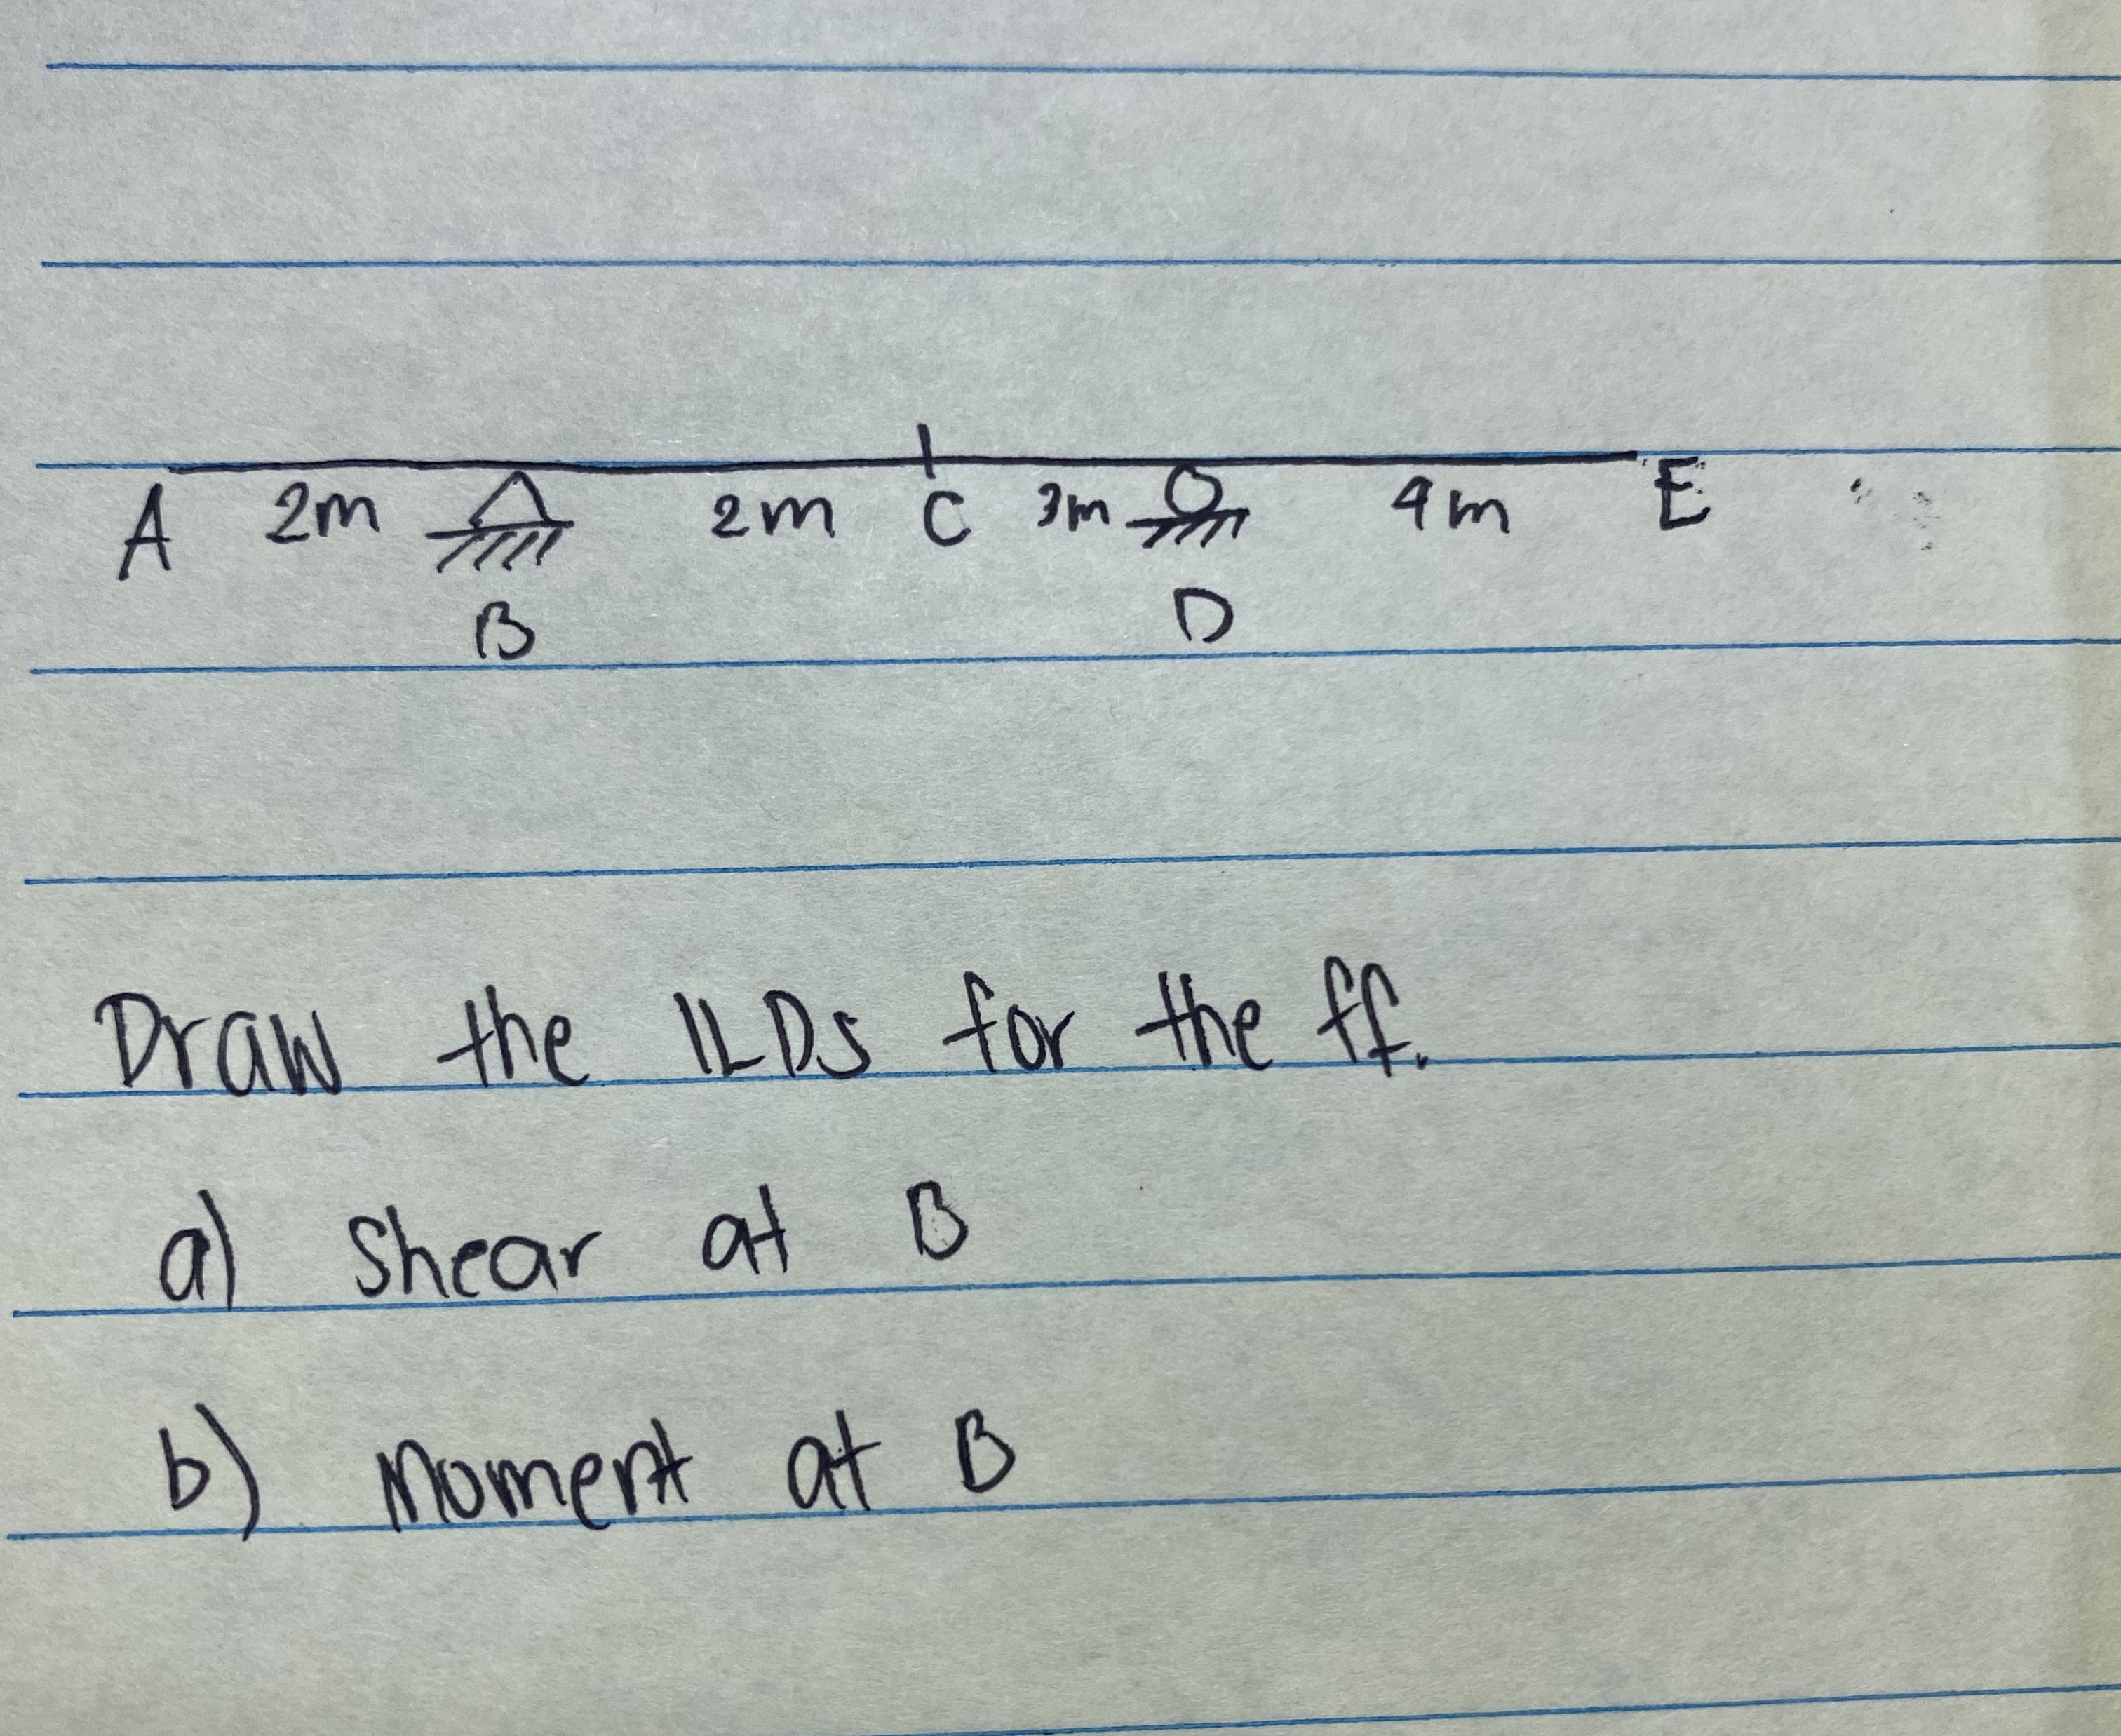 A 2m 2m C 3m 4m E
B D
Draw the ILDs for the ff.
a) Shear at B
b) Moment at B